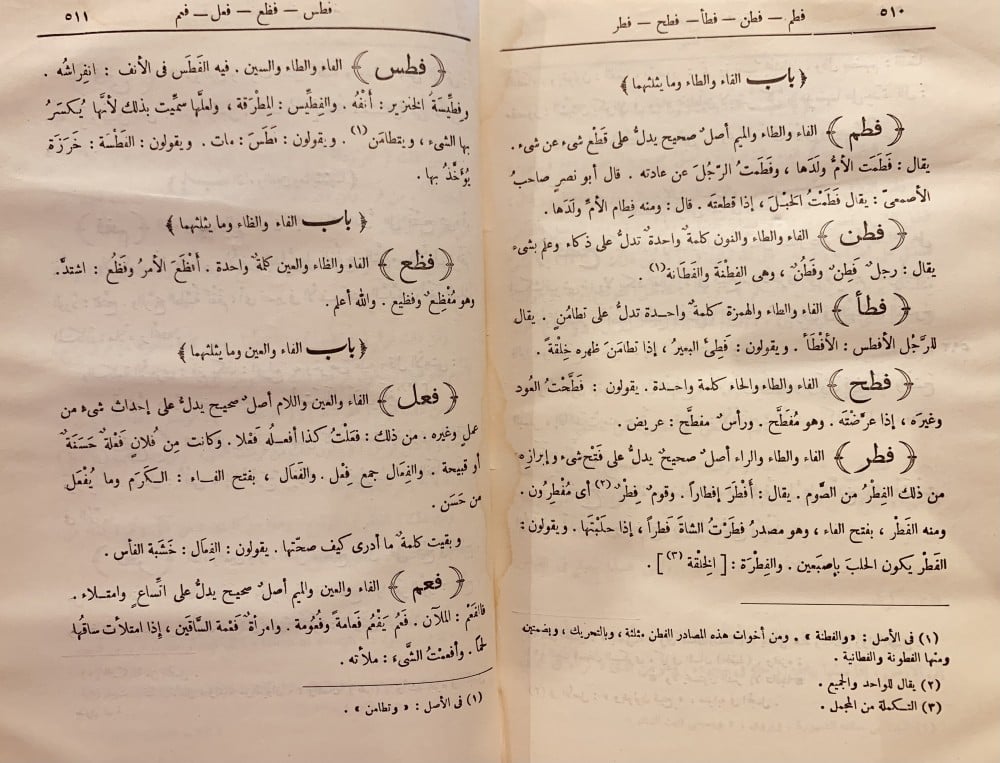 ٥١٠
فطم — فطن — فطأ — فطح — فطر
﴿ باب الفاء والطاء وما يثلثهما ﴾
﴿ فطم ﴾ الفاء والطاء والميم أصلٌ صحيح يدلُّ على قَطْع شىء عن شىء .
يقال : فَطَمَت الأمُّ ولَدَها ، وفَطَمتُ الرّجُلَ عن عادته . قال أبو نصرٍ صاحبُ
الأصمعىّ : يقال فَطَمْتُ الحَبْلَ ، إذا قطعتَه . قال : ومنه فِطام الأمِّ ولَدَها .
﴿ فطن ﴾ الفاء والطاء والنون كلمةٌ واحدة تدلُّ على ذكاء وعلم بشىء
يقال : رجلٌ فَطِنٌ وفَطُنٌ ، وهى الفِطْنَة والفَطَانة(١) .
﴿ فطأ ﴾ الفاء والطاء والهمزة كلمةٌ واحــدة تدلُّ على تطامُنٍ . يقال
للرَّجُل الأفطس : الأفْطَأ . ويقولون : فَطِئَ البعيرُ ، إذا تطامَنَ ظهره خِلْقةً .
﴿ فطح ﴾ الفاء والطاء والحاء كلمة واحــدة . يقولون : فَطَّحْتُ العُود
وغيرَه ، إذا عرَّضْتَه . وهو مُفَطَّح . ورأسٌ مفطَّح : عريض .
﴿ فطر ﴾ الفاء والطاء والراء أصلٌ صحيحٌ يدلُّ على فَتْح شىء وإبرازِه
من ذلك الفِطْرُ من الصَّوم . يقال : أَفْطَرَ إفطاراً . وقومٌ فِطْرٌ(٢) أى مُفْطِرُون .
ومنه الفَطْر ، بفتح الفاء ، وهو مصدرُ فَطَرْتُ الشاةَ فَطراً ، إذا حلَبْتَها . ويقولون :
الفَطْر يكون الحلبَ بإصبَعين . والفِطْرَة : [ الخِلْقة(٣) ] .
(١) فى الأصل : «والفطنة » . ومن أخوات هذه المصادر الفطن مثلثة ، وبالتحريك ، وبضمتين
ومنها الفطونة والفطانية .
(٢) يقال للواحد والجميع .
(٣) التكملة من المجمل .
فطس — فظع — فعل — فعم
٥١١
﴿ فطس ﴾ الفاء والطاء والسين . فيه الفَطَس فى الأنف : انفِراشُه .
وفِطِّيسَةُ الخنزير : أنْفُه . والفِطِّيس : المِطرَقة ، ولعلَّها سمِّيت بذلك لأنَّها يُكسَرُ
بها الشىء ، ويتطامَن(١) . ويقولون : فَطَسَ : مات . ويقولون : الفَطْسة : خَرَزَة
يُؤَخَّذُ بها .
﴿ باب الفاء والظاء وما يثلثهما ﴾
﴿ فظع ﴾ الفاء والظاء والعين كلمةٌ واحدة . أَفْظَعَ الأمرُ وفَظُع : اشتدَّ.
وهو مُفْظِعٌ وفظيع . والله أعلم .
﴿ باب الفاء والعين وما يثلثهما ﴾
﴿ فعل ﴾ الفاء والعين واللام أصلٌ صحيح يدلُّ على إحداث شىء من
عملٍ وغيره . من ذلك : فعَلْتُ كذا أفعــلُه فَعْلا . وكانت مِن فُلانٍ فَعْلةٌ حَسَنَةٌ
أو قبيحة . والفِعال جمع فِعْل . والفَعَال ، بفتح الفــاء : الكَرَم وما يُفْعَل
من حَسَن .
وبقيت كلمةٌ ما أدرى كيف صحّتها . يقولون : الفِعَال : خَشَبة الفأس .
﴿ فعم ﴾ الفاء والعين والميم أصلٌ صحيح يدلُّ على اتِّساعٍ وامتلاء .
فالفَعْم : الملآن . فَعُم يَفْعُم فَعامةً وفُعُومة . وامرأةٌ فَعْمة السَّاقَين ، إذا امتلأت ساقُها
لحماً . وأفعمْتُ الشَّىءَ : ملأته .
(١) فى الأصل : « وتطامن » .